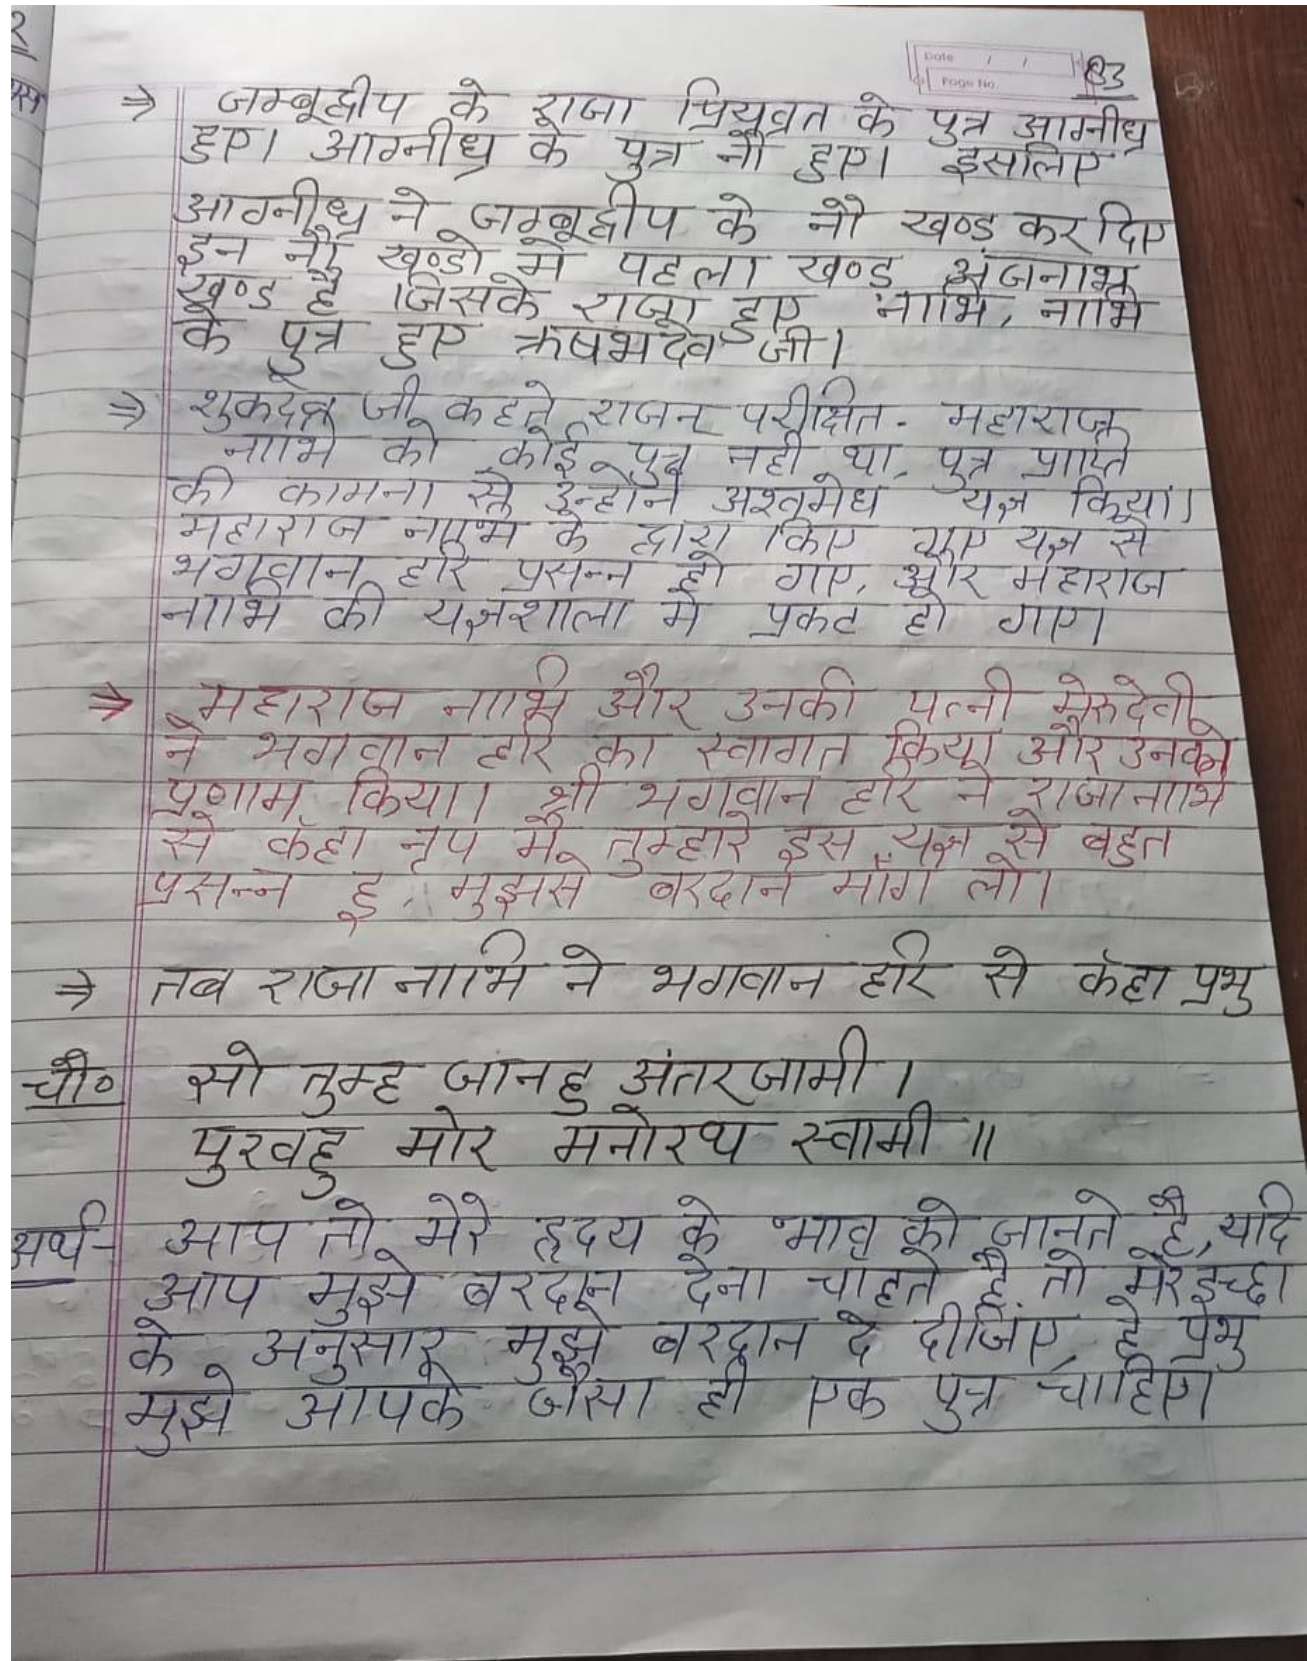 Date / /
Page No.
83
⇒ जम्बूद्वीप के राजा प्रियव्रत के पुत्र आग्नीध्र
हुए। आग्नीध्र के पुत्र नौ हुए। इसलिए
आग्नीध्र ने जम्बूद्वीप के नौ खण्ड कर दिए
इन नौ खण्डो में पहला खण्ड अंजनाभ
खण्ड है जिसके राजा हुए नाभि, नाभि
के पुत्र हुए ऋषभदेव जी।
⇒ शुकदेव जी कहते राजन परीक्षित - महाराज
नाभि को कोई पुत्र नही था, पुत्र प्राप्ति
की कामना से उन्होने अश्वमेध यज्ञ किया।
महाराज नाभि के द्वारा किए गए यज्ञ से
भगवान हरि प्रसन्न हो गए, और महाराज
नाभि की यज्ञशाला मे प्रकट हो गए।
⇒ महाराज नाभि और उनकी पत्नी मेरुदेवी
ने भगवान हरि का स्वागत किया और उनको
प्रणाम किया। श्री भगवान हरि ने राजा नाभि
से कहा नृप मै तुम्हारे इस यज्ञ से बहुत
प्रसन्न हू, मुझसे बरदान माँग लो।
⇒ तब राजा नाभि ने भगवान हरि से कहा प्रभु
चौ० सो तुम्ह जानहु अंतरजामी।
पुरवहु मोर मनोरथ स्वामी॥
अर्थ- आप तो मेरे हृदय के भाव को जानते है, यदि
आप मुझे बरदान देना चाहते है तो मेरे इच्छा
के अनुसार मुझे बरदान दे दीजिए हे प्रभु
मुझे आपके जैसा ही एक पुत्र चाहिए।